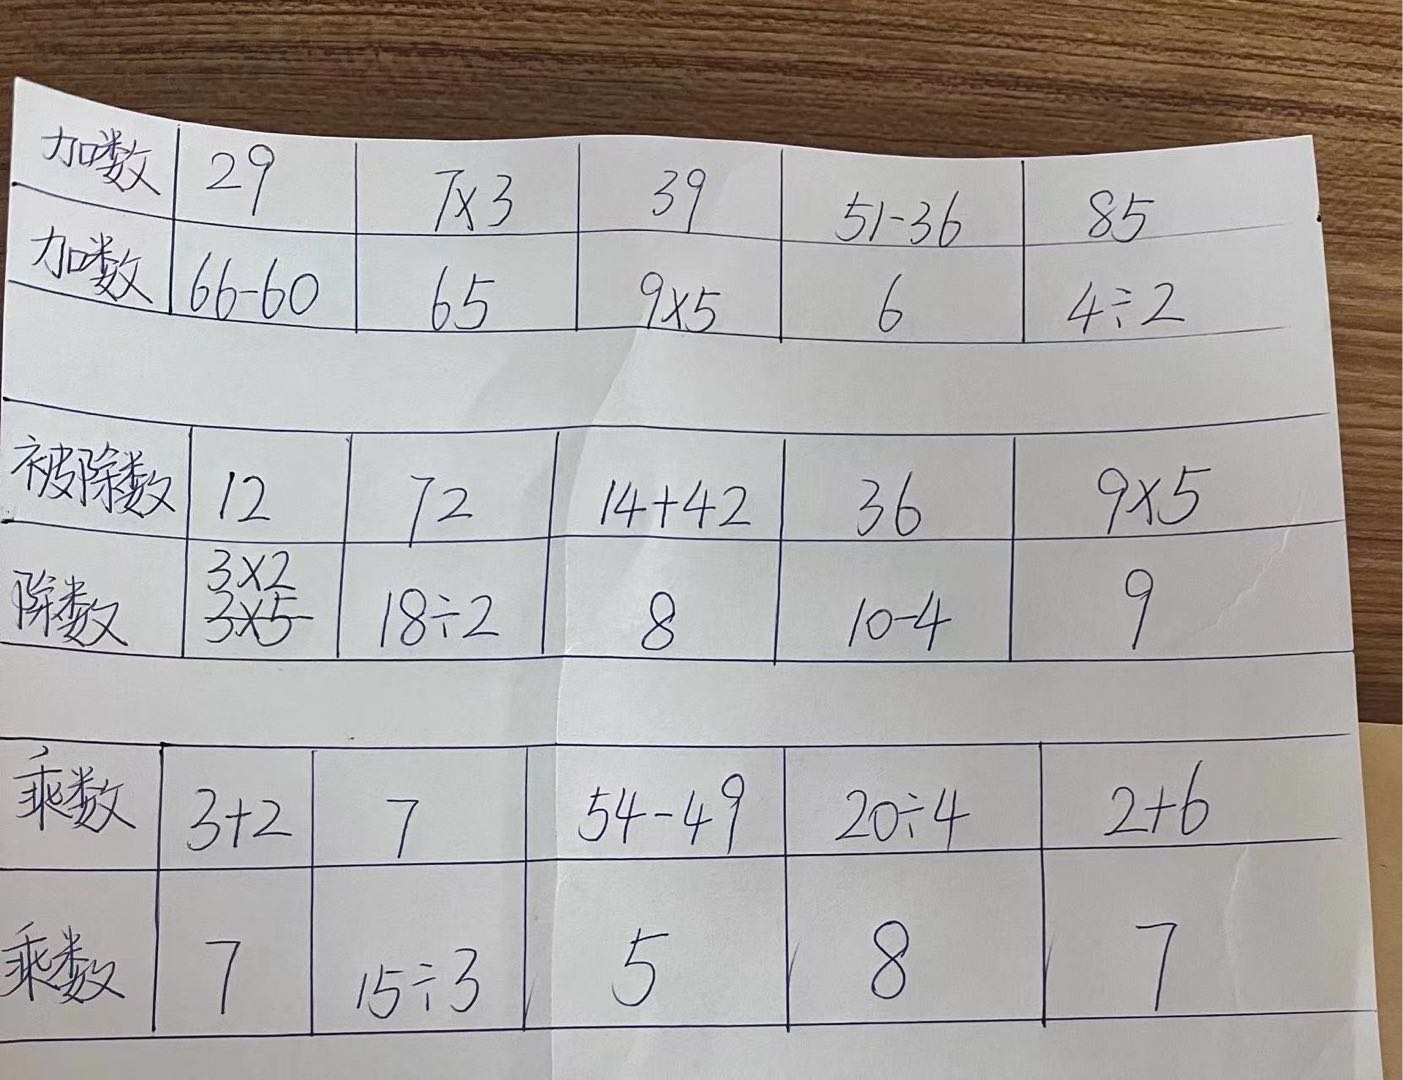 加数 29 7×3 39 51-36 85
加数 66-60 65 9×5 6 4÷2
被除数 12 72 14+42 36 9×5
3×2
除数 3×5 18÷2 8 10-4 9
乘数 3+2 7 54-49 20÷4 2+6
乘数 7 15÷3 5 8 7